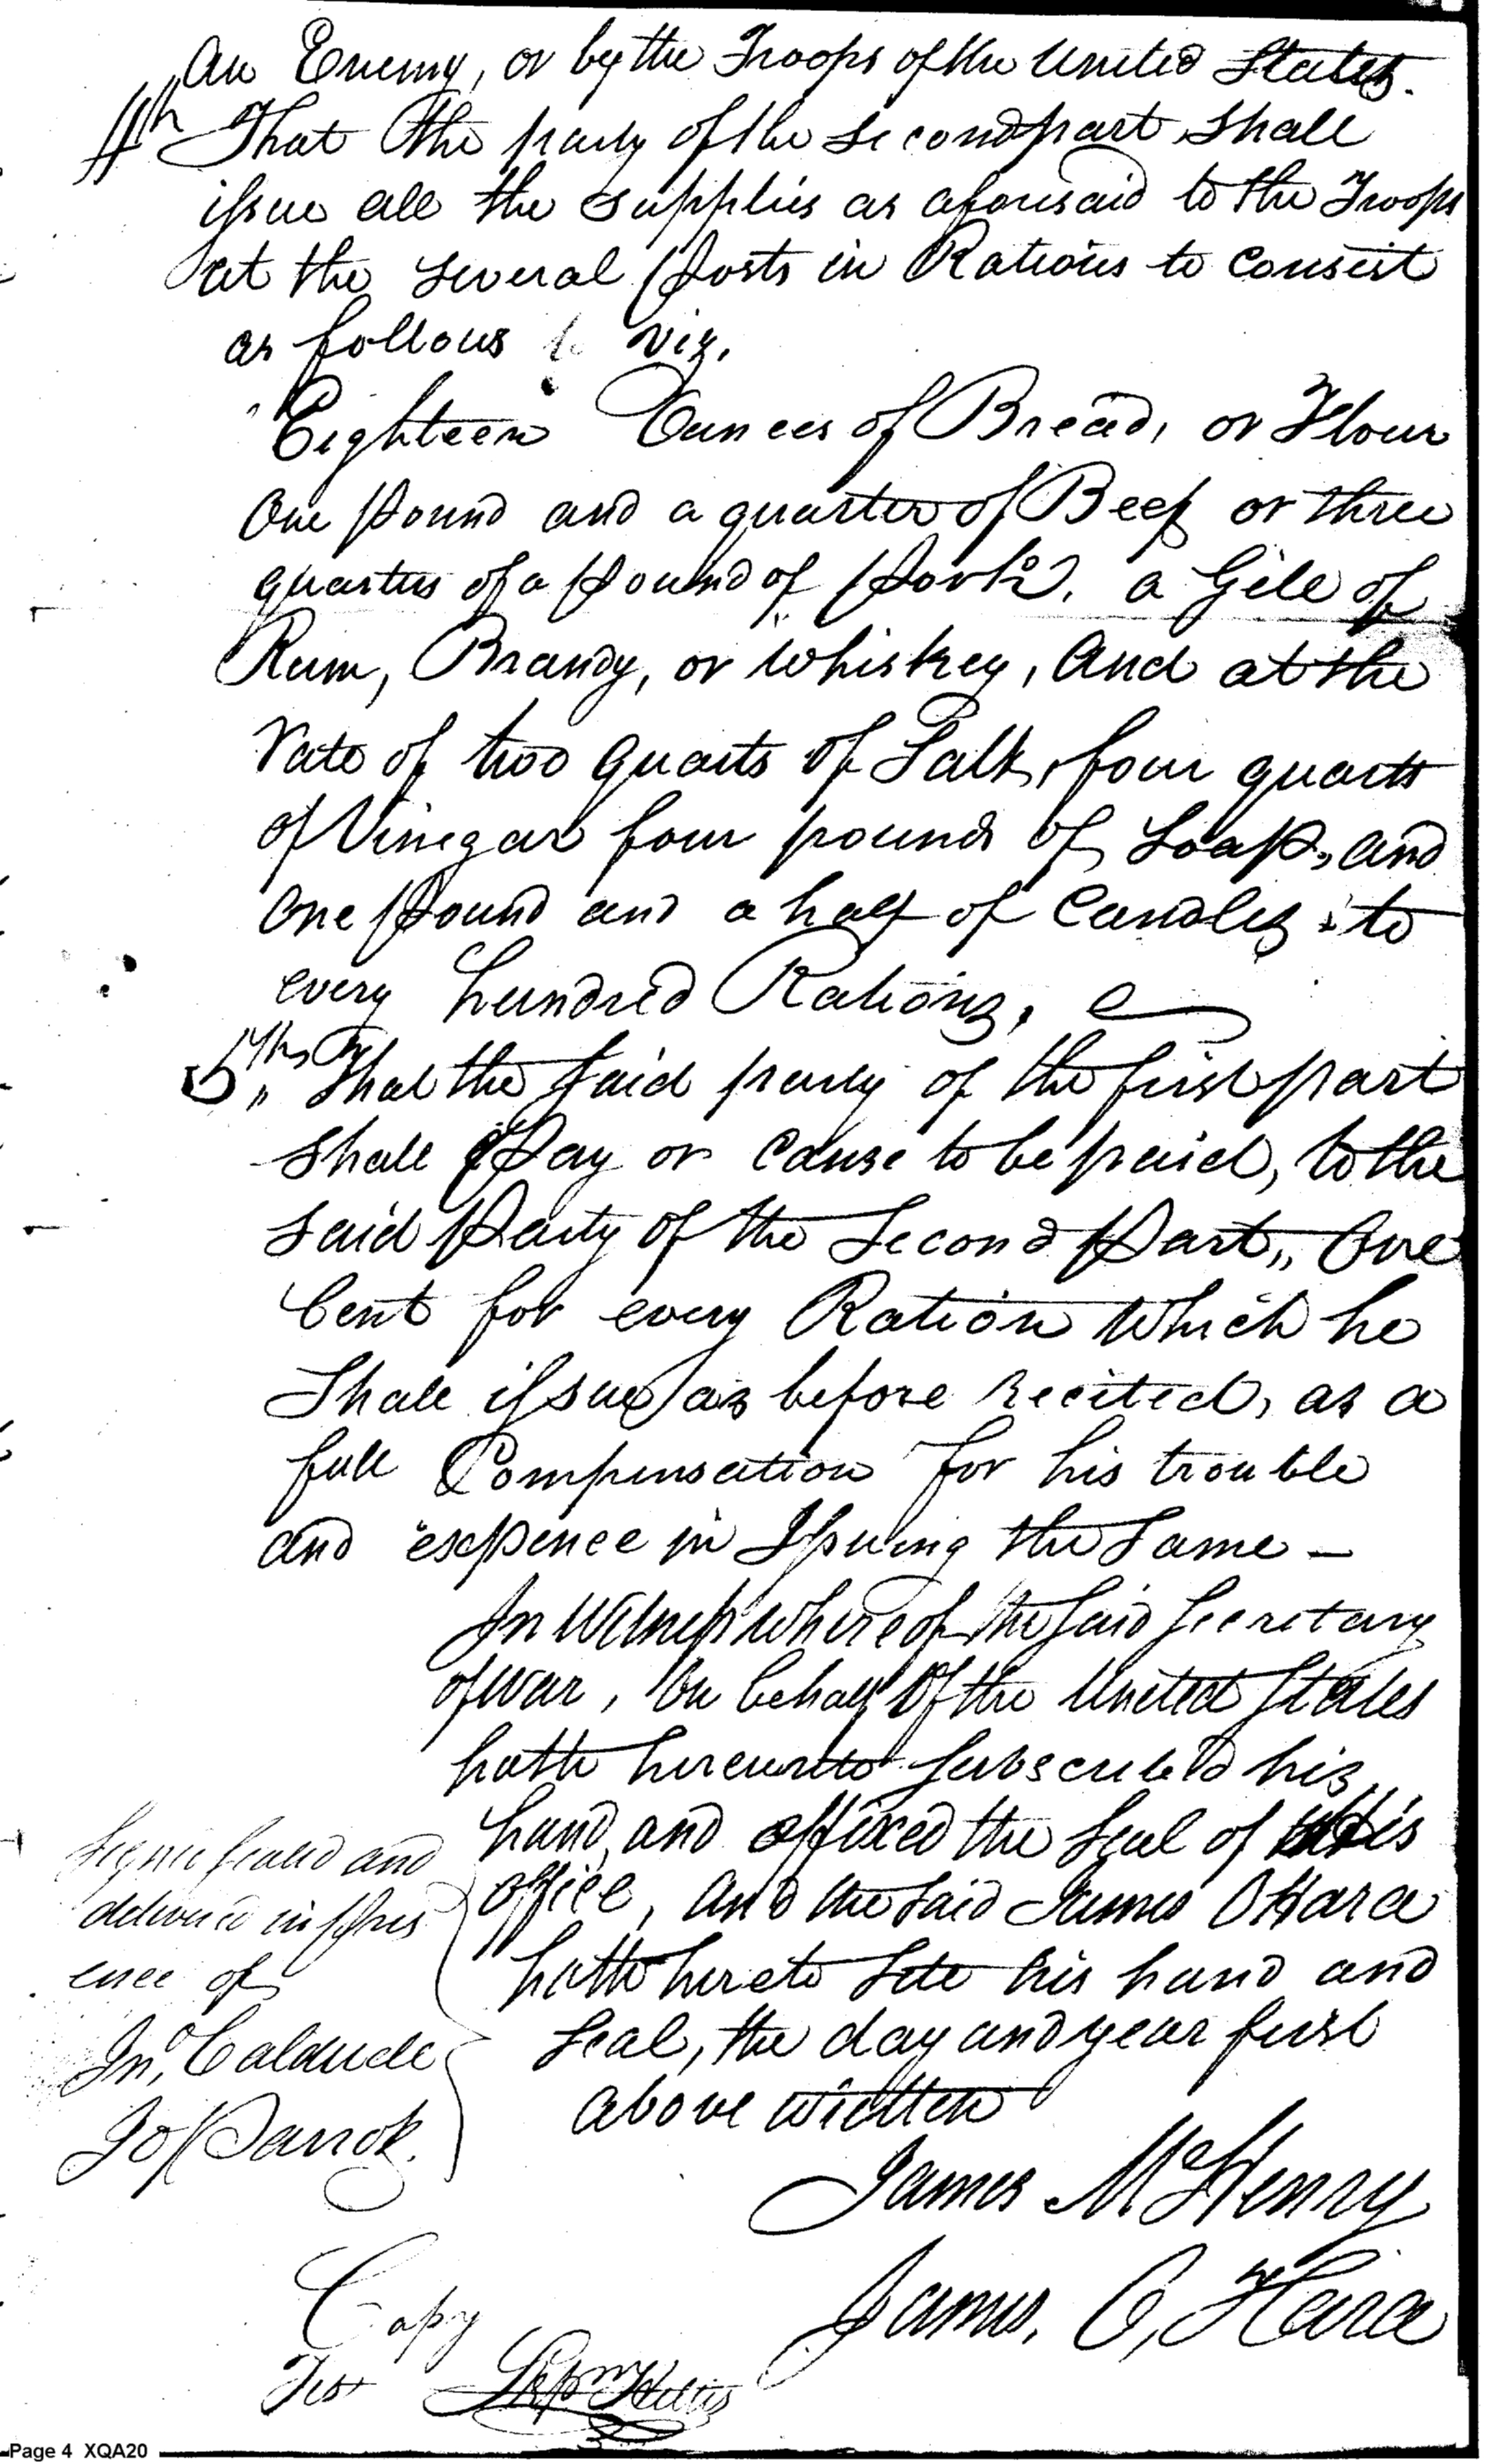 an Enemy, or by the Troops of the United States.
4th That the party of the second part shall
issue all the supplies as aforesaid to the Troops
at the several Posts in Rations to consist
as follows viz.
Eighteen Ounces of Bread, or Flour
One Pound and a quarter of Beef or three
quarters of a Pound of Pork. a Gill of
Rum, Brandy, or Whiskey, And at the
rate of two quarts of Salt, four quarts
of Vinegar four pounds of Soap, and
One Pound and a half of Candles to
every hundred Rations,
5th,, That the said party of the first part
shall Pay or Cause to be paid, to the
said Party of the Second Part,, One
Cent for every Ration Which he
Shall issue as before recited, as a
full Compensation for his trouble
and expence in Issuing the Same —
In Witness whereof the said Secretary
of war, On behalf Of the United States
hath hereunto subscribed his
hand, and affixed the Seal of his
office, and the said James OHara
hath hereto Sett his hand and
Seal, the day and year first
above written
Signed sealed and
delivered in Pres
ence of
Jno,
Jo
James McHenry
James, O,Hara
Copy
Test
Page 4 XQA20